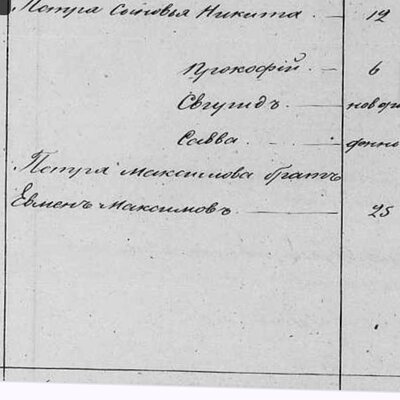 Петра Сыновья Никита 12
Прокофій 6
Свиридъ новоро
Савва
Петра Максимова братъ
Евменъ Максимовъ 25